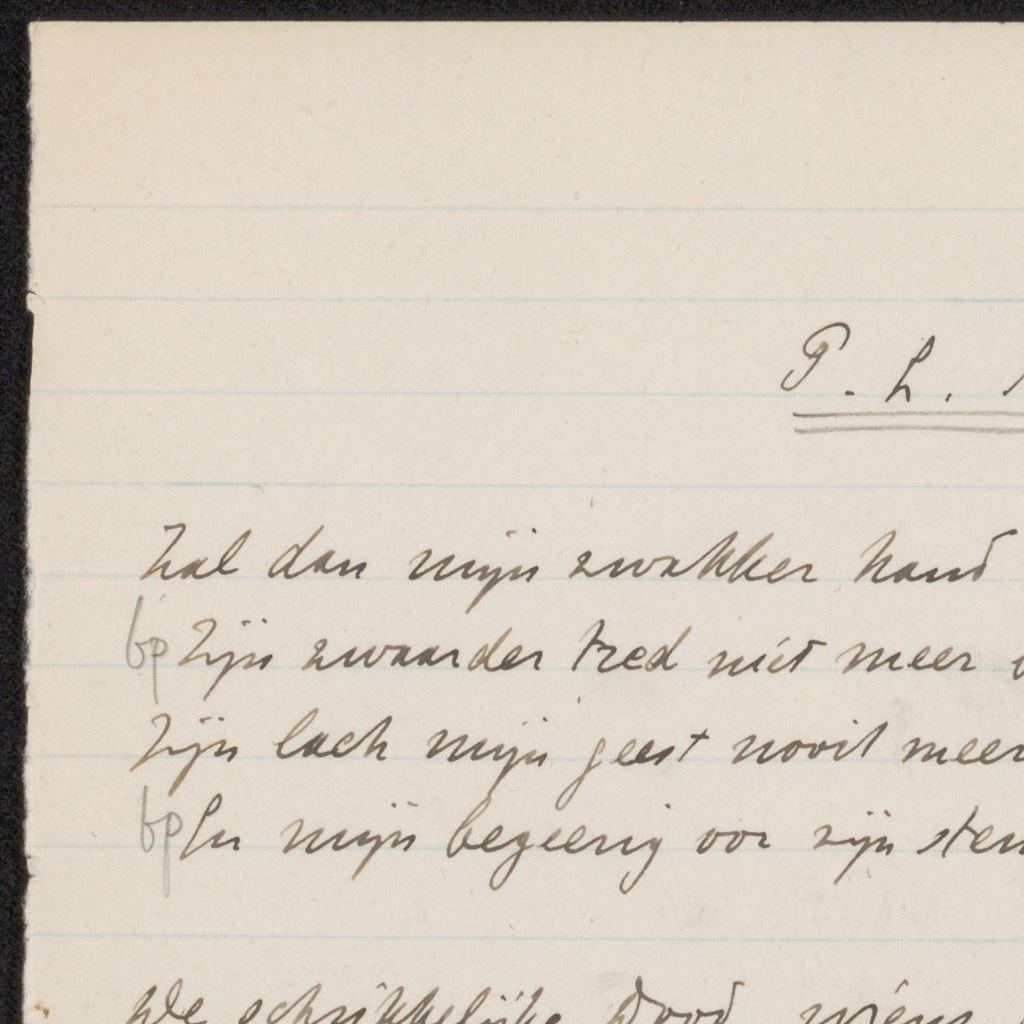 P. L.
Zal dan mijn zwakker hand
bp Zijn zwaarder tred niet meer
Zijn lach mijn geest nooit meer
bp In mijn begeerig oor zijn stem
De schrikkelijke Dood, wiens